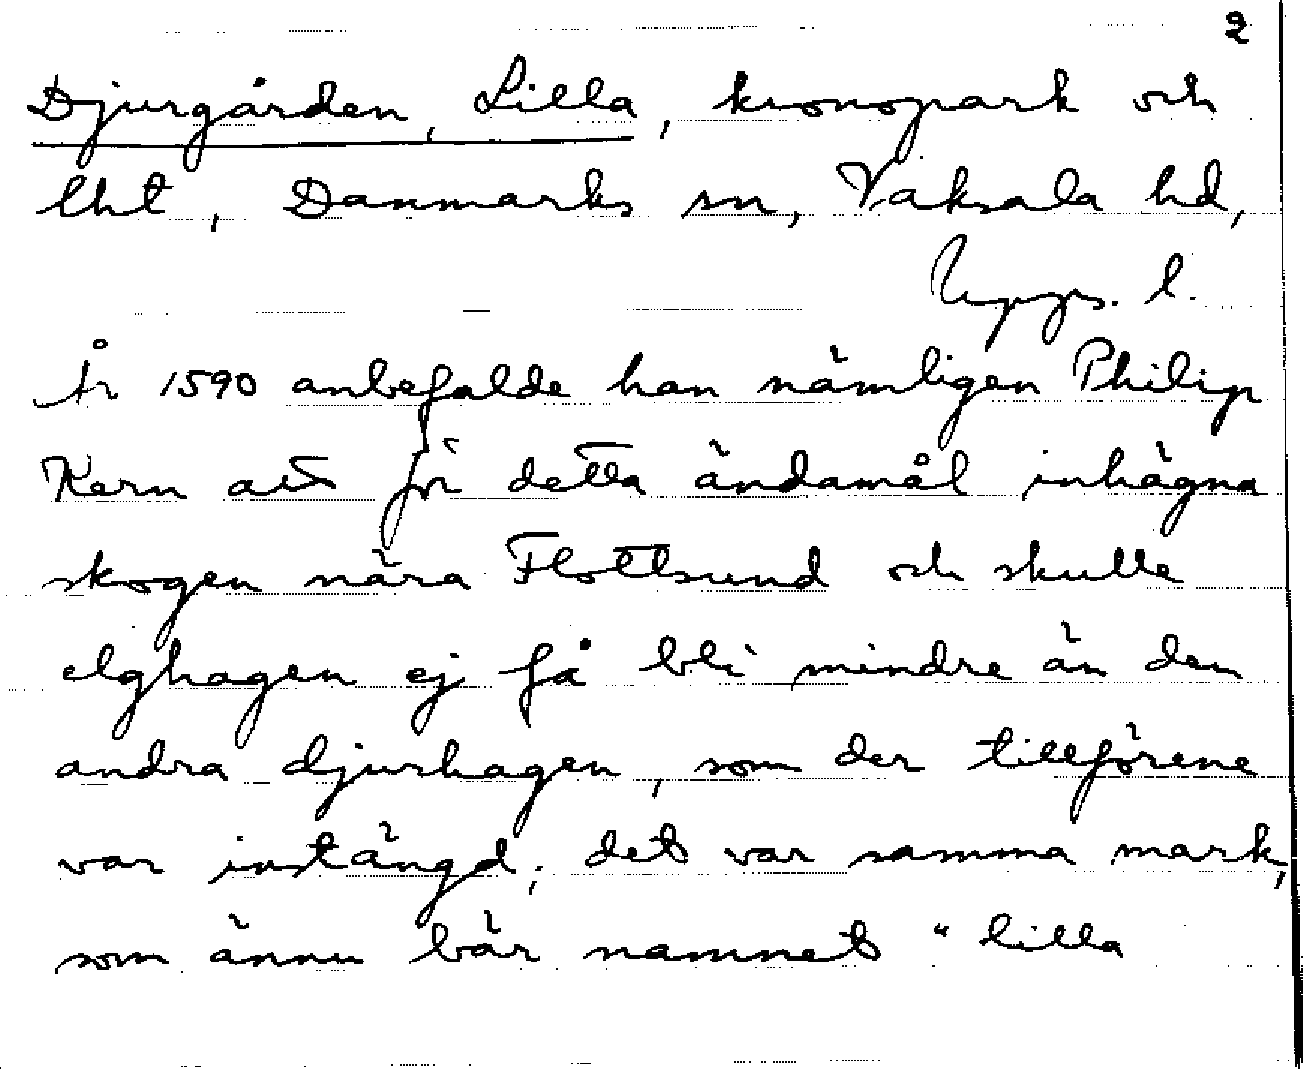 2
Djurgården, Lilla, kronopark och
lht, Danmarks sn, Vaksala hd,
Upps. l.
År 1590 anbefalde han nämligen Philip
Kern att för detta ändamål inhägna
skogen nära Flottsund och skulle
elghagen ej få bli mindre än den
andra djurhagen, som der tillförene
var instängd; det var samma mark,
som ännu bär namnet "lilla